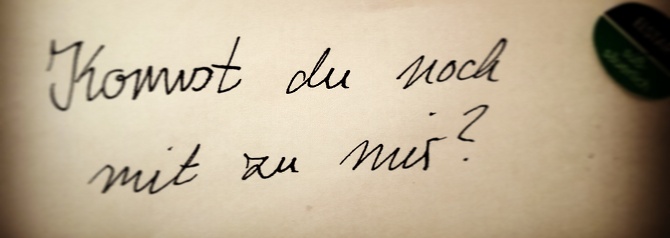 Kommst du noch
mit zu mir?